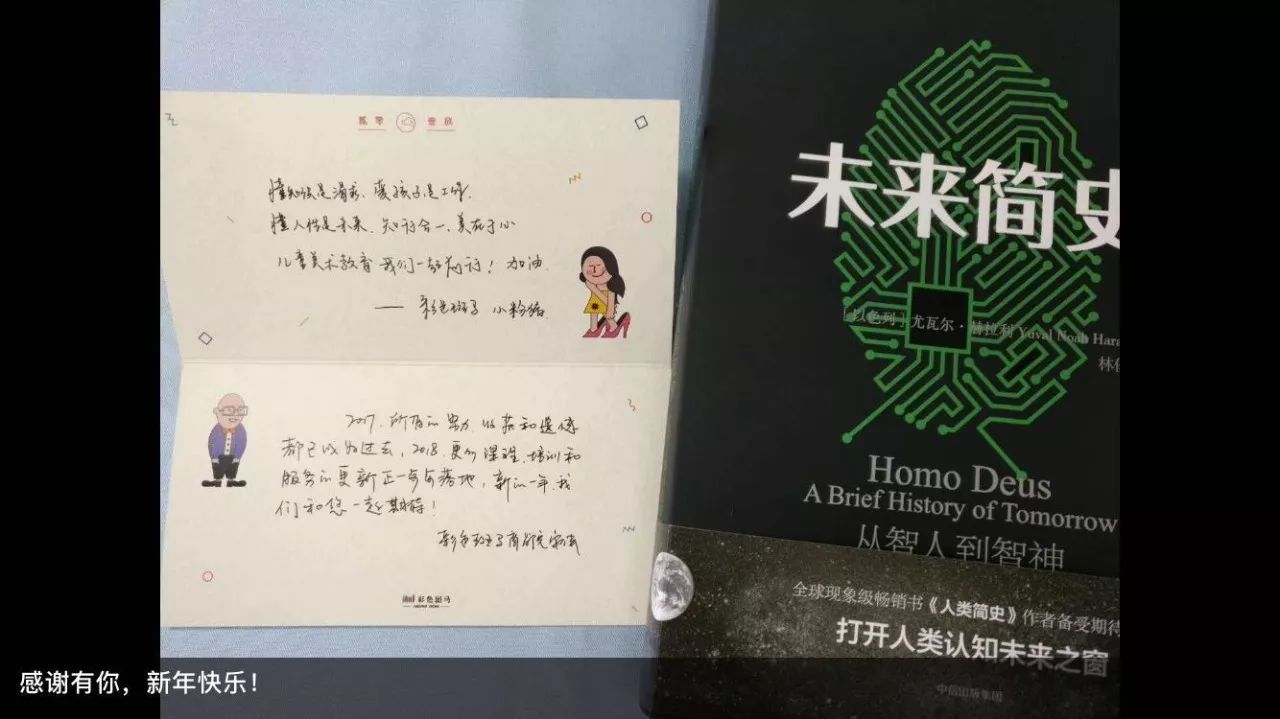 贰零壹捌
懂知识是渴求，爱孩子是工作，
懂人性是未来，知行合一，美在于心
儿童美术教育我们一起前行！加油
—— 彩色斑马 小粉猪
2017，所有的努力、收获和遗憾
都已成为过去，2018，更多课程、培训和
服务的更新正一步步落地，新的一年，我
们和您一起期待！
彩色斑马
彩色斑马
未来简史
[以色列] 尤瓦尔·赫拉利 Yuval Noah Hara
林
Homo Deus
A Brief History of Tomorrow
从智人到智神
全球现象级畅销书《人类简史》作者备受期待
打开人类认知未来之窗
中信出版集团
感谢有你，新年快乐！